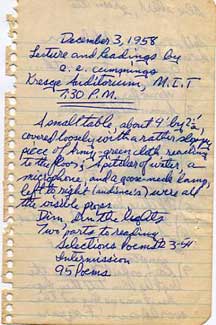 December 3, 1958
Lecture and Readings by
e. e. cummings
Kresge Auditorium, M.I.T
7:30 P.M.
A small table, about 4' by 2½',
covered loosely with a rather sloppy
piece of army-green cloth reaching
to the floor; a pitcher of water, a
microphone, and a goose-neck lamp,
left to right (audience's) were all
the visible props.
Dim the lights
Two parts to reading
Selections Poems
Intermission
95 Poems